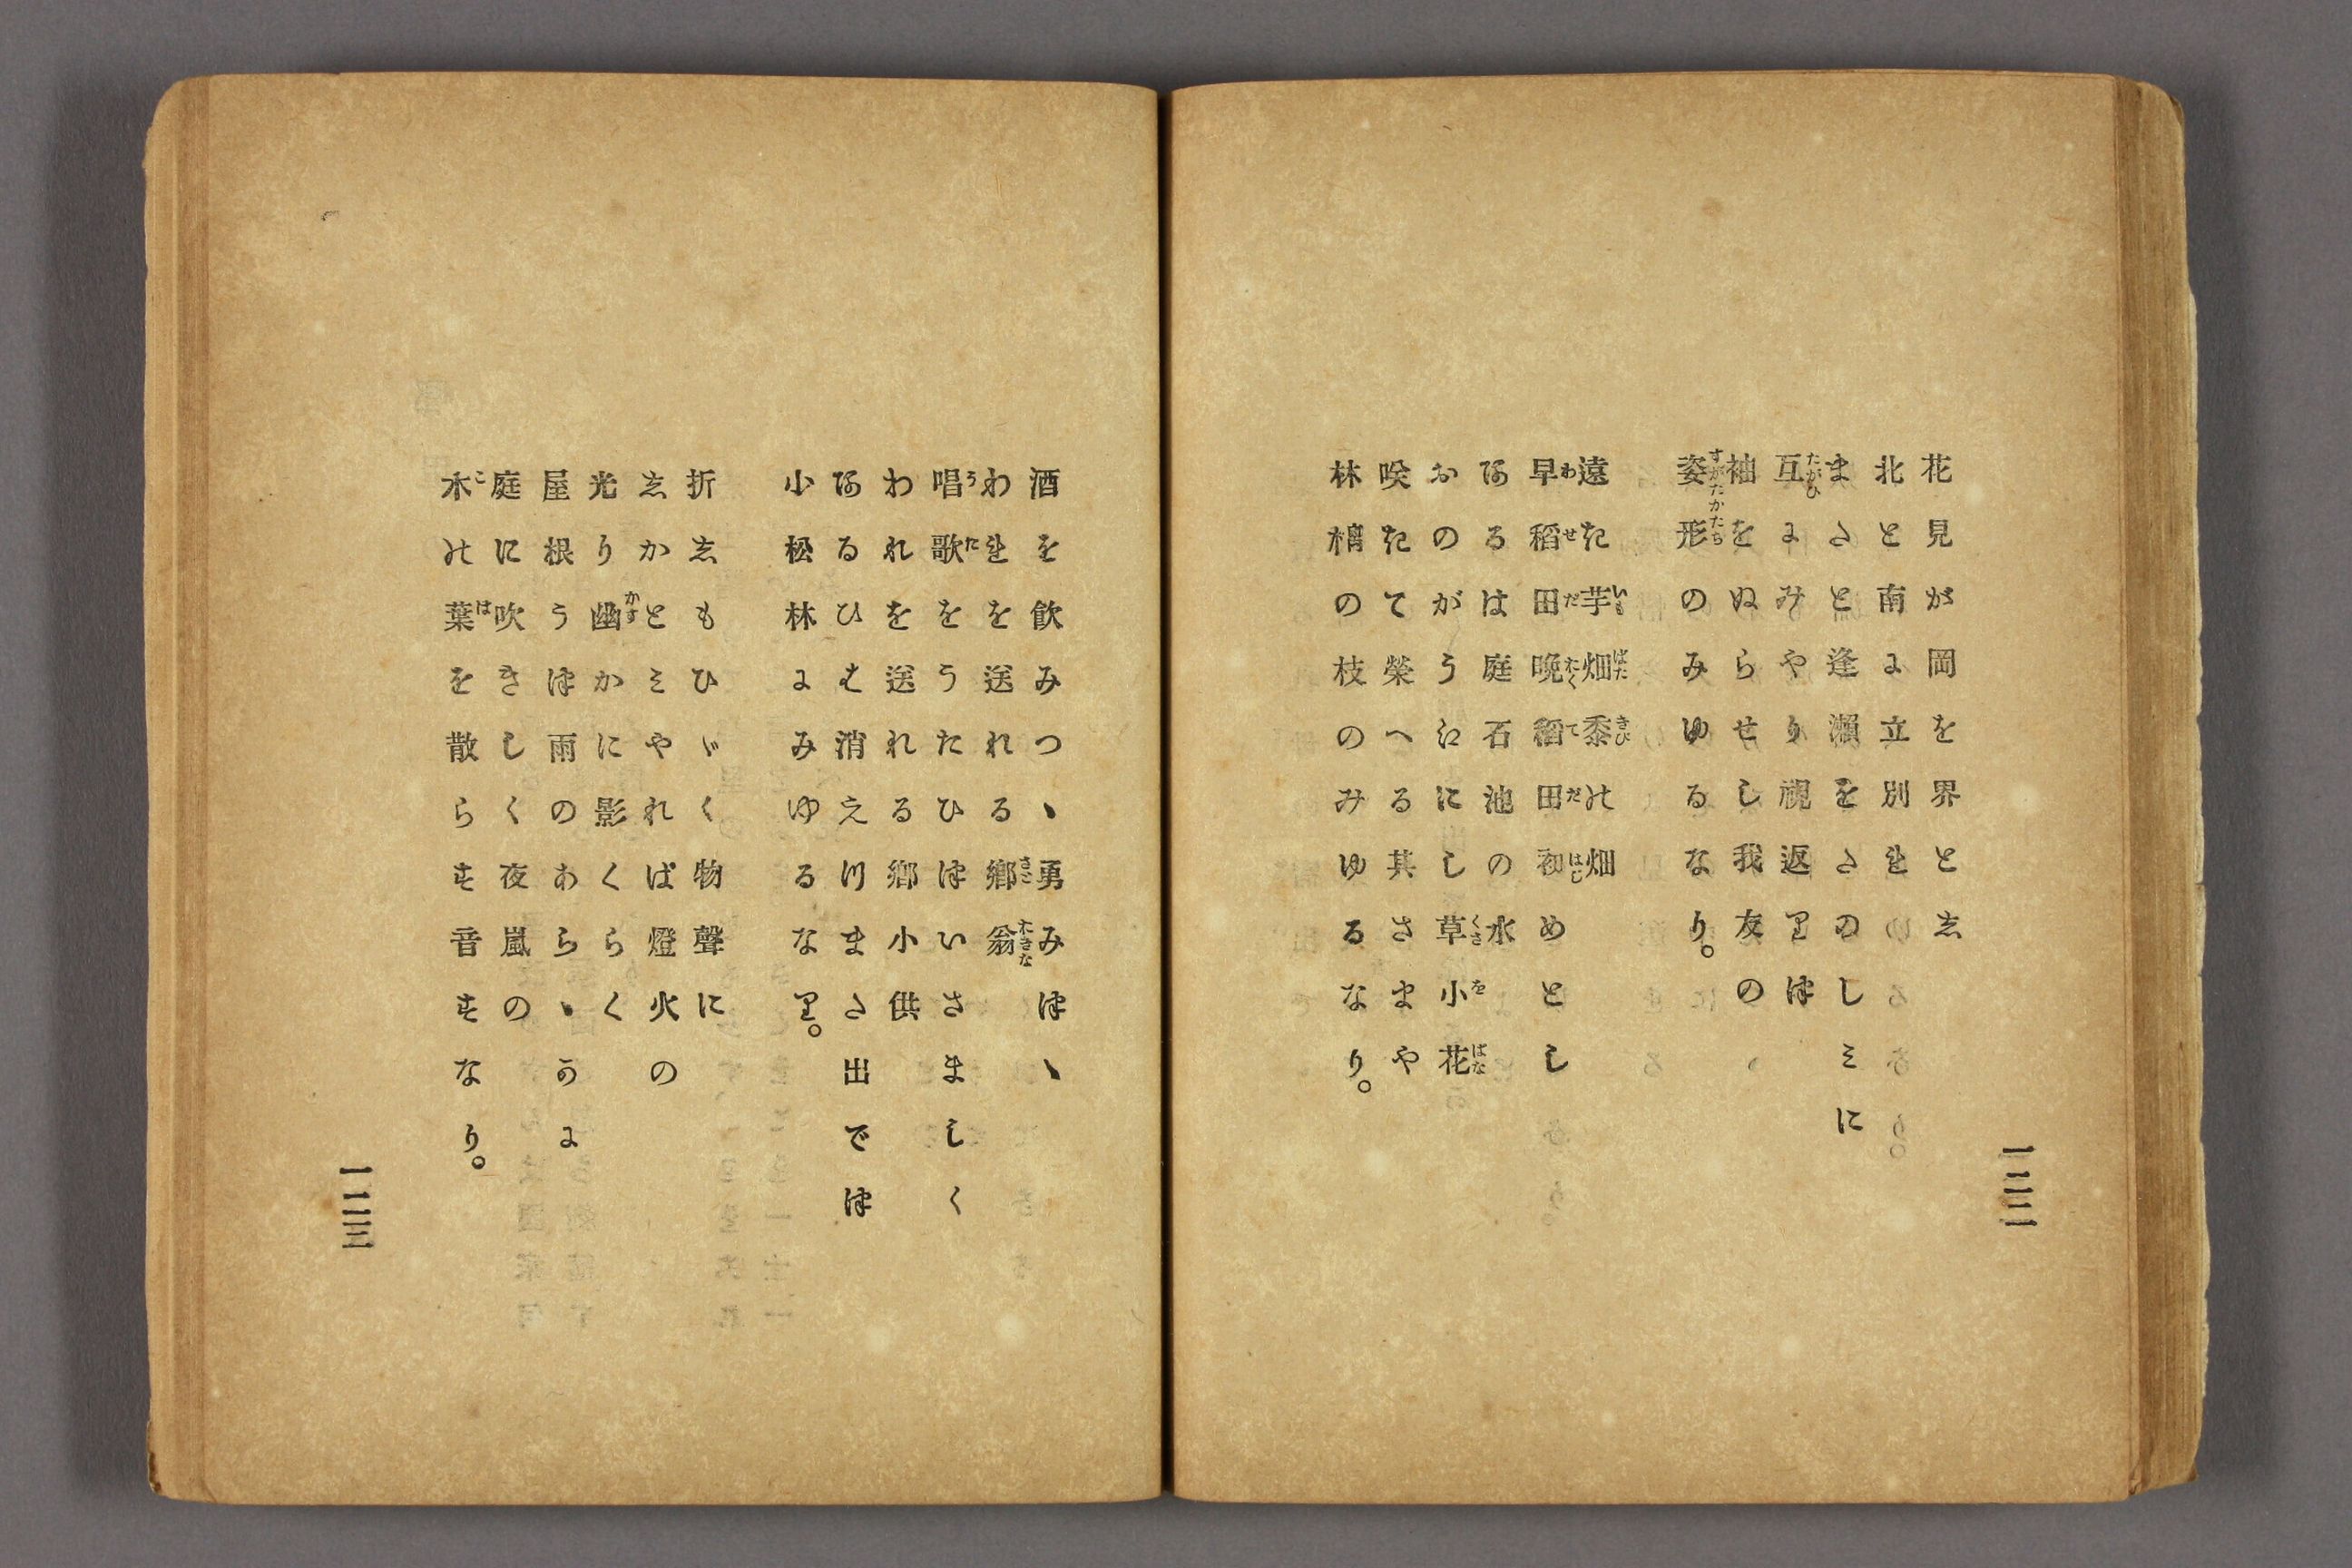 花見が岡を界とし
北と南に立別れ
またと逢瀬をたのしみに
互にみやり視返りつ
袖をぬらせし我友の
姿形のみゆるなり。
遠き芋畑黍の畑
早稻田晩稻田初めとし
あるは庭石池の水
おのがうゑにし草小花
咲きて榮へる其さまや
林檎の枝のみゆるなり。
一二二
酒を飮みつゝ勇みつゝ
われを送れる鄕翁
唱歌をうたひついさましく
われを送れる鄕小供
あるひは消えつまた出でつ
小松林にみゆるなり。
折しもひゞく物聲に
しかとみやれば燈火の
光り幽かに影くらく
屋根うつ雨のあらゝかに
庭に吹きしく夜嵐の
木の葉を散らす音すなり。
一二三